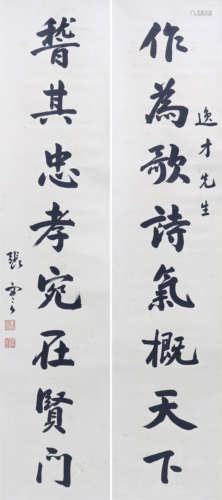 作為歌詩氣概天下
逸才先生
誓其忠孝宛在賢門
張